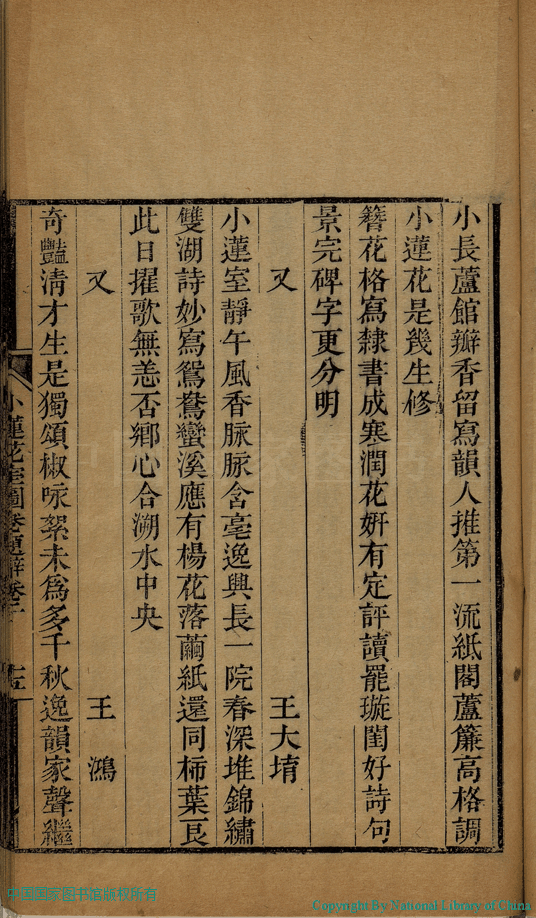 小長蘆館瓣香留寫韻人推第一流紙閣蘆簾高格調
小蓮花是幾生修
簪花格寫隸書成寒澗花姸有定評讀罷璇閨好詩句
景完碑字更分明
又　王大堉
小蓮室靜午風香脉脉含毫逸興長一院春深堆錦繡
雙湖詩妙寫鴛鴦蠻溪應有楊花落繭紙還同柿葉良
此日擢歌無恙否鄉心合溯水中央
又　王鴻
奇豔淸才生是獨頌椒咏絮未爲多千秋逸韻家聲繼
小蓮花室圖卷題辭卷二　十五
中国国家图书馆版权所有
Copyright By National Library of China